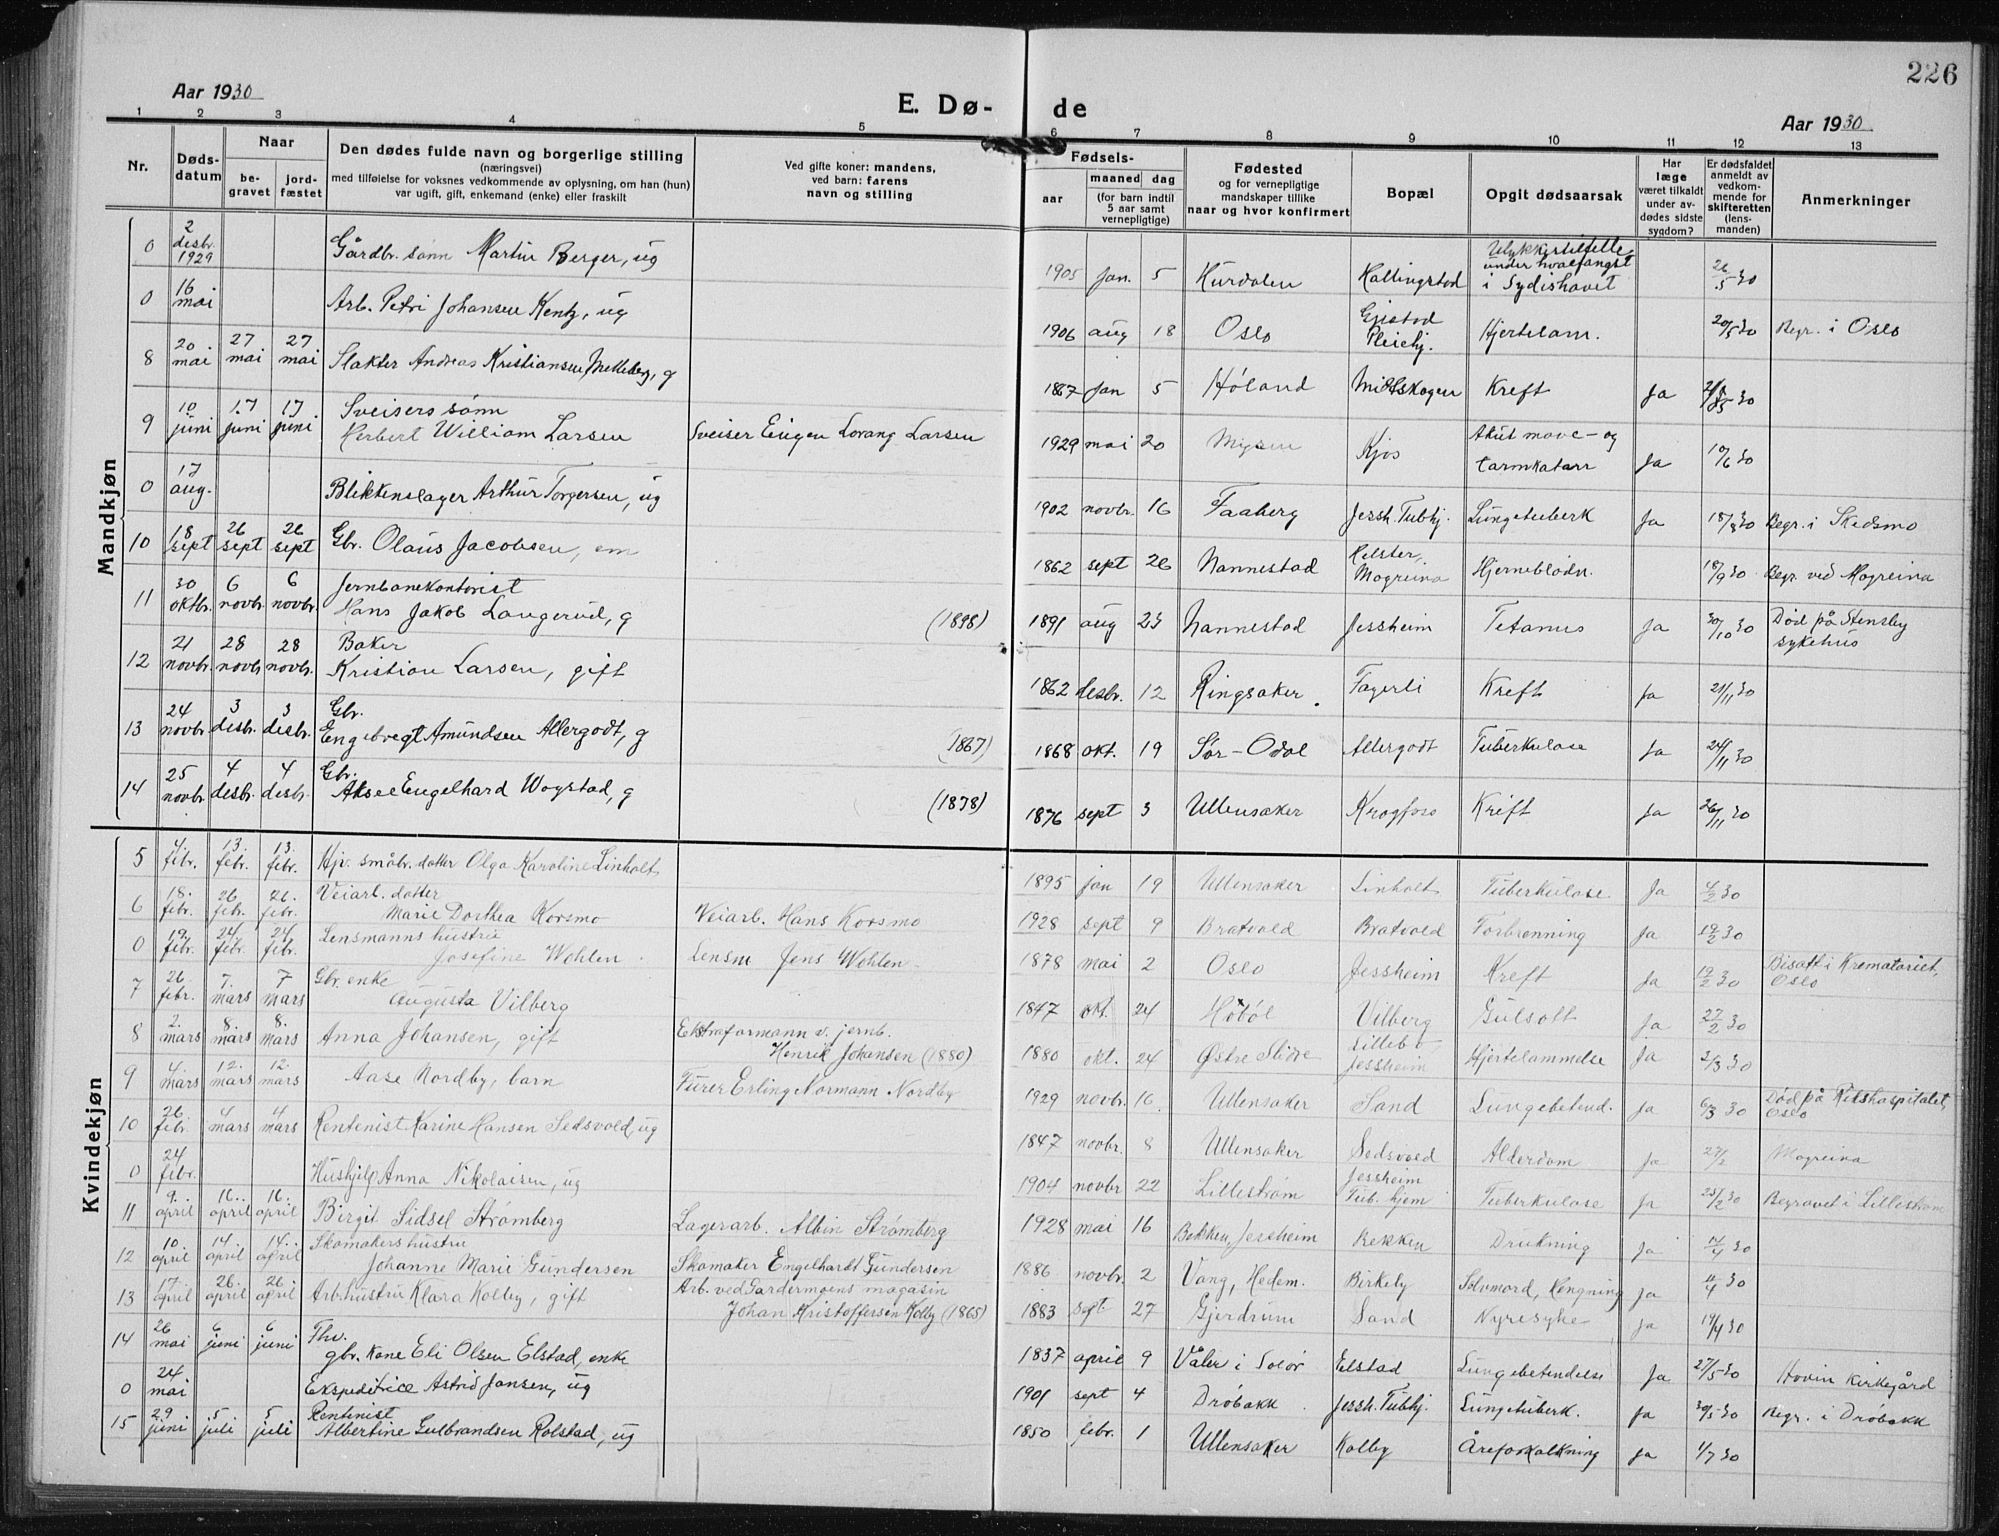 226
Aar 1930
E. Dø-
de
Aar 1930
1 2 3 4 5 6 7 8 9 10 11 12 13
Nr.
Døds-
datum
Naar
be-
gravet
jord-
fæstet
Den dødes fulde navn og borgerlige stilling
(næringsvei)
med tilføielse for voksnes vedkommende av oplysning, om han (hun)
var ugift, gift, enkemand (enke) eller fraskilt
Ved gifte koner: mandens,
ved barn: farens
navn og stilling
Fødsels-
aar
maaned dag
(for barn indtil
5 aar samt
vernepligtige)
Fødested
og for vernepligtige
mandskaper tillike
naar og hvor konfirmert
Bopæl
Opgit dødsaarsak
Har
læge
været tilkaldt
under av-
dødes sidste
sygdom?
Er dødsfaldet
anmeldt av
vedkom-
mende for
skifteretten
(lens-
manden)
Anmerkninger
Mandkjøn
0 2 desbr. 1929 Gårdbr. sønn Martin Berger, ug 1905 jan. 5 Hurdalen Hallingstad Ulykkestilfelle under hvalfangst i Sydishavet 26/5 30
0 16 mai Arb. Petri Johansen Kentz, ug 1906 aug 18 Oslo Gjestad Pleiehj. Hjertelam. 20/5 30 Begr. i Oslo
8 20. mai 27 mai 27 mai Slakter Andreas Kristiansen Melleberg, g 1867 jan 5 Høland Midtskogen Kreft Ja
9 10 juni 17 juni 17 juni Sveisers sønn
Herbert William Larsen Sveiser Eugen Lorang Larsen 1929 mai 20 Mysen Kjos Akut mave- og tarmkatarr Ja 10/6 30
0 17 aug. Blikkenslager Arthur Torgersen, ug 1902 novbr. 16 Faaberg Jessh. Tubhj. Lungetuberk Ja 18/8 30 Begr. i Skedsmo
10 18 sept 26 sept 26 sept Gbr. Olaus Jacobsen, em 1862 sept 26 Nannestad Helster, Mogreina Hjerneblødn. 18/9 30 Begr. ved Mogreina
11 30 oktbr. 6 novbr. 6 novbr. Jernbanekontorist
Hans Jakob Laugerud, g (1898) 1891 aug 23 Nannestad Jessheim Tetanus Ja 30/10 30 Død på Stensby sykehus
12 21 novbr. 28 novbr. 28 novbr. Baker
Kristian Larsen, gift 1862 desbr. 12 Ringsaker. Fagerli Kreft Ja 21/11 30
13 24 novbr. 3 desbr. 3 desbr. Gbr.
Engebregt Amundsen Allergodt, g (1867) 1868 okt. 19 Sør-Odal Allergodt Tuberkulose Ja 24/11 30
14 25 novbr. 4 desbr. 4 desbr. Gbr.
Aksel Engelhard Wogstad, g (1878) 1876 sept 3 Ullensaker Krogfoss Kreft Ja 26/11 30
Kvindekjøn
5 4. febr. 13. febr. 13. febr. Hjv. småbr. datter Olga Karoline Linholt 1895 jan 19 Ullensaker Linholt Tuberkulose Ja 4/2 30
6 18. febr. 26 febr. 26. febr. Veiarb. datter
Marie Dorthea Korsmo Veiarb. Hans Korsmo 1928 sept 9 Bratvold Bratvold Forbrenning Ja 19/2 30
0 19. febr. 24 febr. 24 febr. Lensmanns hustru
Josefine Wohlen Lensm Jens Wohlen 1878 mai 2 Oslo Jessheim Kreft Ja 19/2 30 Bisatt i Krematoriet, Oslo
7 26 febr. 7. mars 7 mars Gbr. enke
Augusta Vilberg 1847 okt. 24 Hobøl Vilberg Gulsott Ja 27/2 30
8 2. mars 8. mars 8. mars Anna Johansen, gift Ekstraformann v. jernb.
Henrik Johansen (1880) 1880 okt. 24 Østre Slidre Lillebo, Jessheim Hjertelammelse Ja 2/3 30
9 4 mars 12. mars 12. mars Aase Nordby, barn Furer Erling Normann Nordby 1929 novbr. 16. Ullensaker Sand Lungebetend. Ja 6/3 30 Død på Rikshospitalet, Oslo
10 26 febr. 4 mars 4 mars Rentenist Karine Hansen Sedsvold, ug 1847 novbr. 8 Ullensaker Sedsvold Alderdom Ja 27/2 Mogreina
0 24 febr. Hushjelp Anna Nikolaisen, ug 1904 novbr 22 Lillestrøm Jessheim Tub. hjem Tuberkulose Ja 25/2 30 Begravet i Lillestrøm
11 9. april 16.. april 16. april Birgit Sidsel Strømberg Lagerarb. Albin Strømberg 1928 mai 16 Bekken, Jessheim Bekken Drukning Ja 30
12 10 april 14 april 14.. april Skomakers hustru
Johanne Marie Gundersen Skomaker Engelhardt Gundersen 1886 novbr. 2 Vang, Hedem. Birkely Selvmord, Hengning Ja 30
13 17 april 26. april 26 april Arb. hustru Klara Kolby, gift Arb. ved Gardermoens magasin
Johan Kristoffersen Kolby (1865) 1883 sept 27 Gjerdrum Sand Nyresyke Ja 19/4 30
14 26 mai 6 juni 6 juni Fhv.
gbr. kone Eli Olsen Elstad, enke 1837 april 9 Våler i Solør Elstad Lungebetendelse Ja 27/5 30 Hovin kirkegård
0 24 mai Ekspeditrice Astrid Jansen, ug 1901 sept 4 Drøbakk Jessh. Tubhj. Lungetuberk. Ja 30/5 30 Begr. i Drøbakk
15 29 juni 5 juli 5 juli Rentenist
Albertine Gulbrandsen Rolstad, ug 1850 febr. 1 Ullensaker Kolby Åreforkalkning Ja 1/7 30